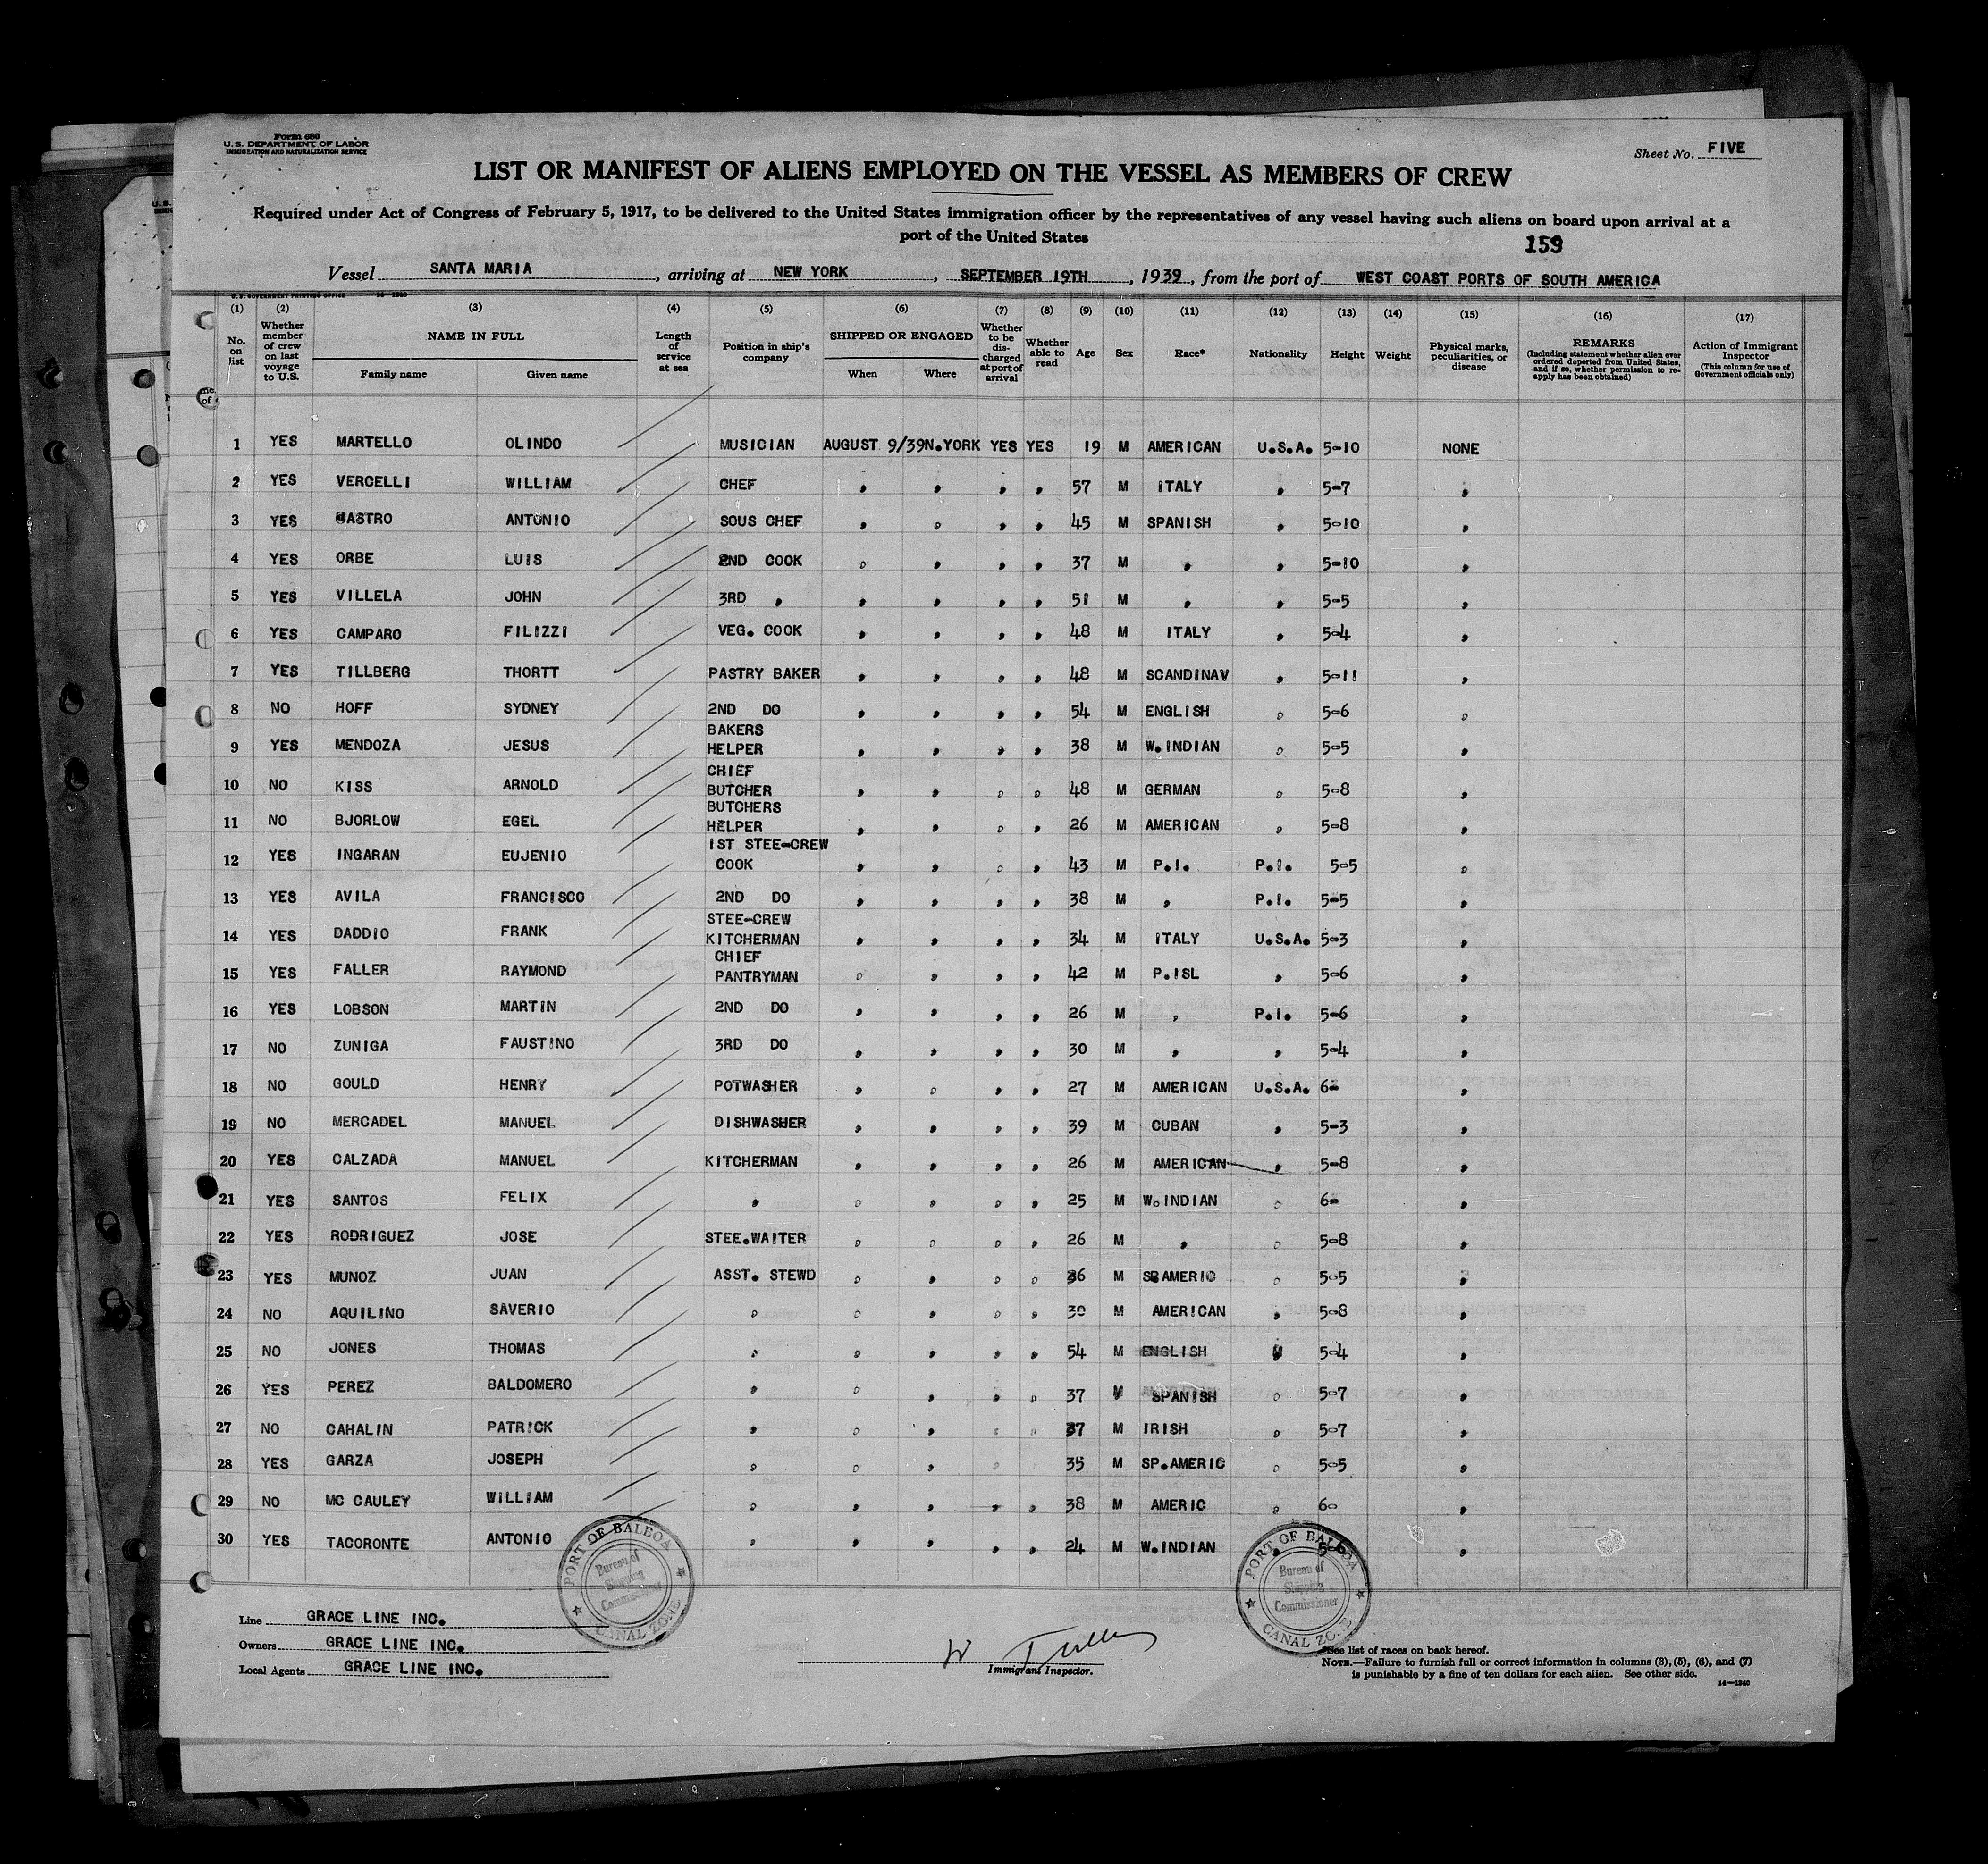 Form 680
U.S. DEPARTMENT OF LABOR
IMMIGRATION AND NATURALIZATION SERVICE
Sheet No. FIVE
LIST OR MANIFEST OF ALIENS EMPLOYED ON THE VESSEL AS MEMBERS OF CREW
Required under Act of Congress of February 5, 1917, to be delivered to the United States immigration officer by the representatives of any vessel having such aliens on board upon arrival at a
port of the United States
159
Vessel SANTA MARIA, arriving at NEW YORK, SEPTEMBER 19TH, 1939, from the port of WEST COAST PORTS OF SOUTH AMERICA
U.S. GOVERNMENT PRINTING OFFICE 14—1240
(1) No. on list (2) Whether member of crew on last voyage to U.S. (3) NAME IN FULL Family name Given name (4) Length of service at sea (5) Position in ship's company (6) SHIPPED OR ENGAGED When Where (7) Whether to be discharged at port of arrival (8) Whether able to read (9) Age (10) Sex (11) Race* (12) Nationality (13) Height (14) Weight (15) Physical marks, peculiarities, or disease (16) REMARKS (Including statement whether alien ever ordered deported from United States, and if so, whether permission to reapply has been obtained) (17) Action of Immigrant Inspector (This column for use of Government officials only)
1 YES MARTELLO OLINDO MUSICIAN AUGUST 9/39 N.YORK YES YES 19 M AMERICAN U.S.A. 5-10 NONE
2 YES VERCELLI WILLIAM CHEF , , , , 57 M ITALY , 5-7 ,
3 YES CASTRO ANTONIO SOUS CHEF , , , , 45 M SPANISH , 5-10 ,
4 YES ORBE LUIS 2ND COOK , , , , 37 M , , 5-10 ,
5 YES VILLELA JOHN 3RD , , , , , 51 M , , 5-5 ,
6 YES CAMPARO FILIZZI VEG. COOK , , , , 48 M ITALY , 5-4 ,
7 YES TILLBERG THORTT PASTRY BAKER , , , , 48 M SCANDINAV , 5-11 ,
8 NO HOFF SYDNEY 2ND DO , , , , 54 M ENGLISH , 5-6 ,
9 YES MENDOZA JESUS BAKERS HELPER , , , , 38 M W.INDIAN , 5-5 ,
10 NO KISS ARNOLD CHIEF BUTCHER , , , , 48 M GERMAN , 5-8 ,
11 NO BJORLOW EGEL BUTCHERS HELPER , , , , 26 M AMERICAN , 5-8 ,
12 YES INGARAN EUJENIO 1ST STEE-CREW COOK , , , , 43 M P.I. P.I. 5-5 ,
13 YES AVILA FRANCISCO 2ND DO , , , , 38 M , P.I. 5-5 ,
14 YES DADDIO FRANK STEE-CREW KITCHERMAN , , , , 34 M ITALY U.S.A. 5-3 ,
15 YES FALLER RAYMOND CHIEF PANTRYMAN , , , , 42 M P.ISL , 5-6 ,
16 YES LOBSON MARTIN 2ND DO , , , , 26 M , P.I. 5-6 ,
17 NO ZUNIGA FAUSTINO 3RD DO , , , , 30 M , , 5-4 ,
18 NO GOULD HENRY POTWASHER , , , , 27 M AMERICAN U.S.A. 6- ,
19 NO MERCADEL MANUEL DISHWASHER , , , , 39 M CUBAN , 5-3 ,
20 YES CALZADA MANUEL KITCHERMAN , , , , 26 M AMERICAN , 5-8 ,
21 YES SANTOS FELIX , , , , , 25 M W.INDIAN , 6- ,
22 YES RODRIGUEZ JOSE STEE.WAITER , , , , 26 M , , 5-8 ,
23 YES MUNOZ JUAN ASST. STEWD , , , , 36 M SP.AMERIC , 5-5 ,
24 NO AQUILINO SAVERIO , , , , , 30 M AMERICAN , 5-8 ,
25 NO JONES THOMAS , , , , , 54 M ENGLISH , 5-4 ,
26 YES PEREZ BALDOMERO , , , , , 37 M SPANISH , 5-7 ,
27 NO CAHALIN PATRICK , , , , , 37 M IRISH , 5-7 ,
28 YES GARZA JOSEPH , , , , 35 M SP.AMERIC , 5-5 ,
29 NO MC CAULEY WILLIAM , , , , , 38 M AMERIC , 6- ,
30 YES TACORONTE ANTONIO , , , , , 24 M W.INDIAN , ,
PORT OF BALBOA Bureau of Shipping Commissioner CANAL ZONE
PORT OF BALBOA Bureau of Shipping Commissioner CANAL ZONE
Line GRACE LINE INC.
Owners GRACE LINE INC.
Local Agents GRACE LINE INC.
Immigrant Inspector.
*See list of races on back hereof.
NOTE.—Failure to furnish full or correct information in columns (3), (5), (6), and (7)
is punishable by a fine of ten dollars for each alien. See other side.
14—1240